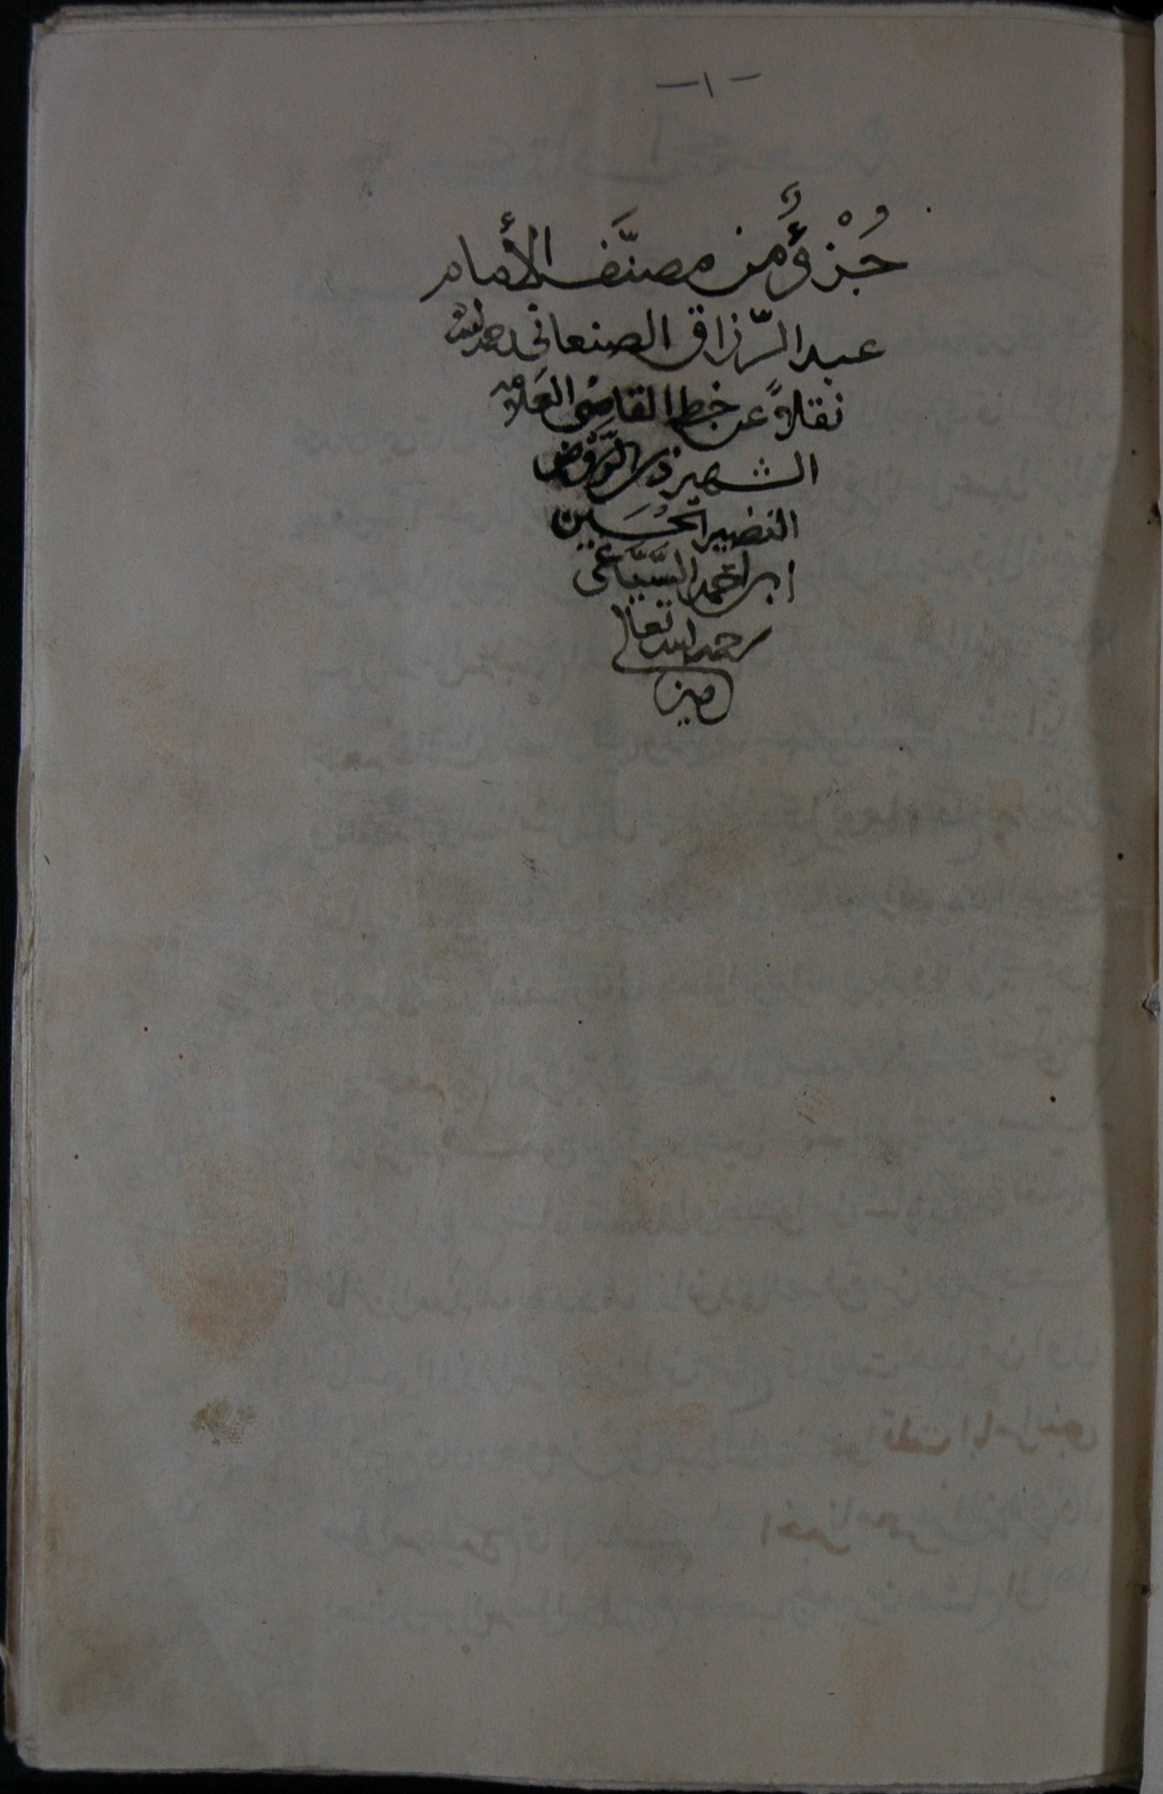 -١-
جُزْؤٌ من مصنَّف الأمام
عبد الرّزاق الصنعاني رحمه الله
نقلاً عن خط القاضي العلامه
الشهير ذي الروض
النضير الحُسَين
ابن احمد السَّيَّاغي
رحمه الله تعالى
امين